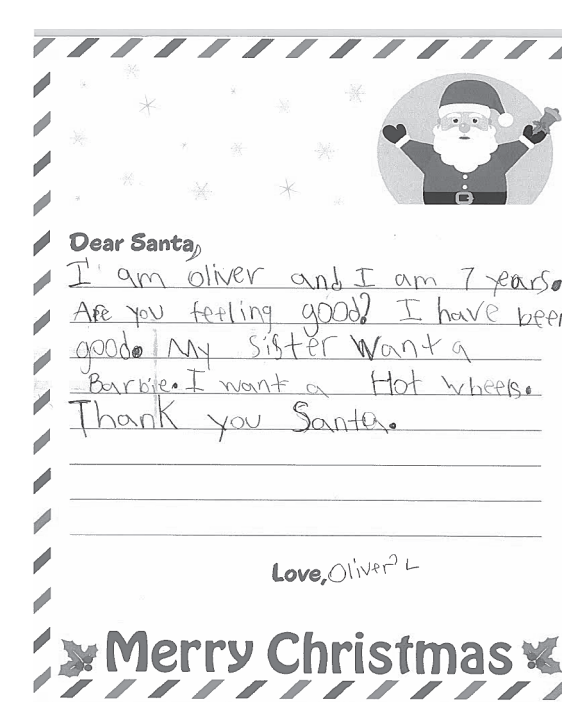 Dear Santa,
I am oliver and I am 7 years.
Are you feeling good? I have been
good. My sister want a
Barbie. I want a Hot wheels.
Thank you Santa.
Love, Oliver L
Merry Christmas